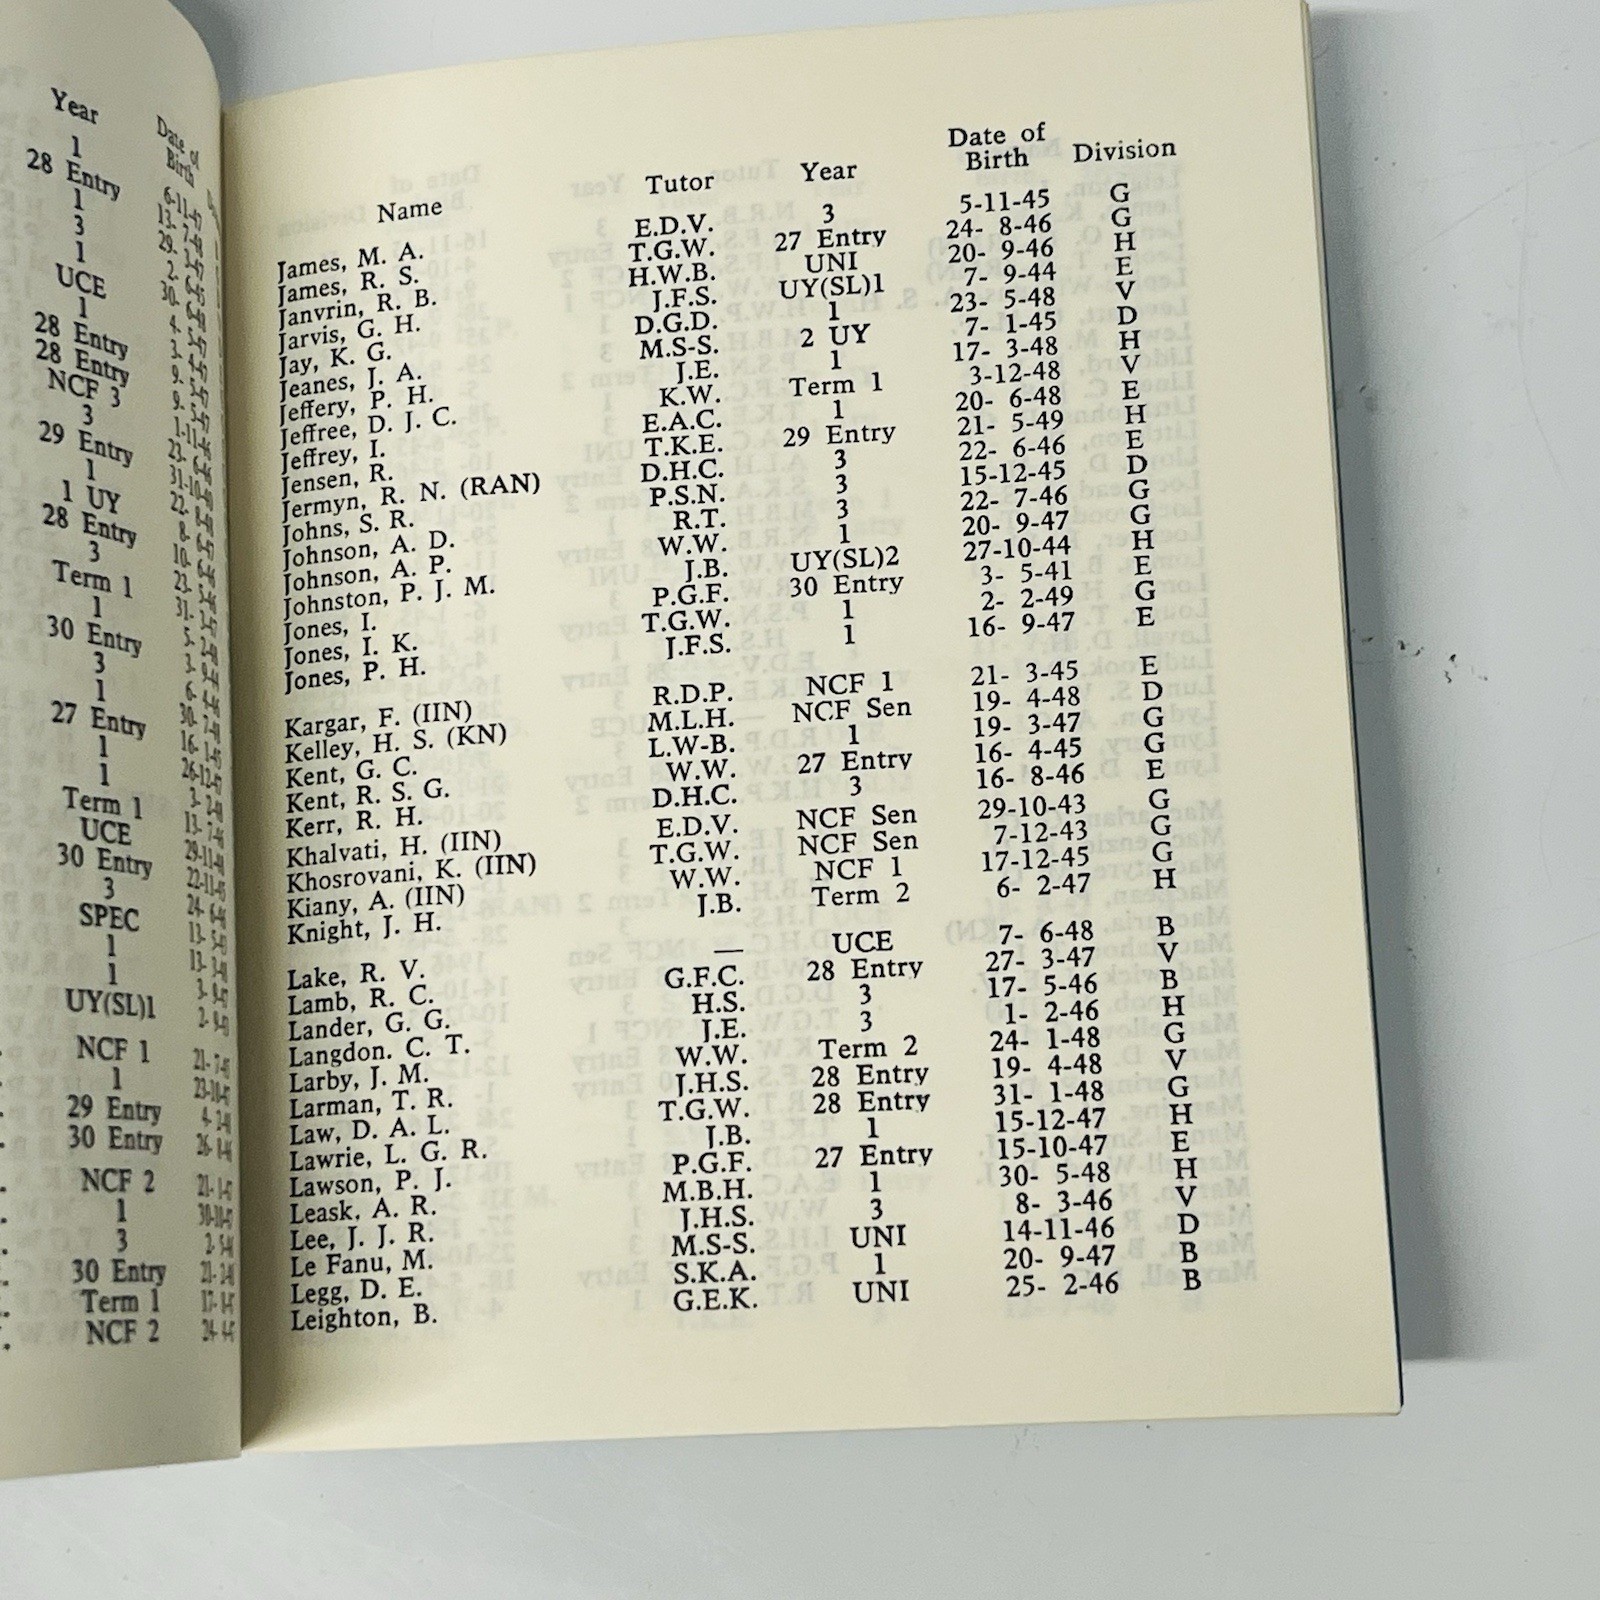 Year
Date of
Birth
1
28 Entry
1
3
1
UCE
1
28 Entry
28 Entry
NCF 3
3
29 Entry
1
1 UY
28 Entry
3
Term 1
1
30 Entry
3
1
27 Entry
1
1
Term 1
UCE
30 Entry
3
SPEC
1
1
UY(SL)1
NCF 1
1
29 Entry
30 Entry
NCF 2
1
3
30 Entry
Term 1
NCF 2
Name Tutor Year Date of Birth Division
James, M. A. E.D.V. 3 5-11-45 G
James, R. S. T.G.W. 27 Entry 24- 8-46 G
Janvrin, R. B. H.W.B. UNI 20- 9-46 H
Jarvis, G. H. J.F.S. UY(SL)1 7- 9-44 E
Jay, K. G. D.G.D. 1 23- 5-48 V
Jeanes, J. A. M.S-S. 2 UY 7- 1-45 D
Jeffery, P. H. J.E. 1 17- 3-48 H
Jeffree, D. J. C. K.W. Term 1 3-12-48 V
Jeffrey, I. E.A.C. 1 20- 6-48 E
Jensen, R. T.K.E. 29 Entry 21- 5-49 H
Jermyn, R. N. (RAN) D.H.C. 3 22- 6-46 E
Johns, S. R. P.S.N. 3 15-12-45 D
Johnson, A. D. R.T. 3 22- 7-46 G
Johnson, A. P. W.W. 1 20- 9-47 G
Johnston, P. J. M. J.B. UY(SL)2 27-10-44 H
Jones, I. P.G.F. 30 Entry 3- 5-41 E
Jones, I. K. T.G.W. 1 2- 2-49 G
Jones, P. H. J.F.S. 1 16- 9-47 E
Kargar, F. (IIN) R.D.P. NCF 1 21- 3-45 E
Kelley, H. S. (KN) M.L.H. NCF Sen 19- 4-48 D
Kent, G. C. L.W-B. 1 19- 3-47 G
Kent, R. S. G. W.W. 27 Entry 16- 4-45 G
Kerr, R. H. D.H.C. 3 16- 8-46 E
Khalvati, H. (IIN) E.D.V. NCF Sen 29-10-43 G
Khosrovani, K. (IIN) T.G.W. NCF Sen 7-12-43 G
Kiany, A. (IIN) W.W. NCF 1 17-12-45 G
Knight, J. H. J.B. Term 2 6- 2-47 H
Lake, R. V. — UCE 7- 6-48 B
Lamb, R. C. G.F.C. 28 Entry 27- 3-47 V
Lander, G. G. H.S. 3 17- 5-46 B
Langdon. C. T. J.E. 3 1- 2-46 H
Larby, J. M. W.W. Term 2 24- 1-48 G
Larman, T. R. J.H.S. 28 Entry 19- 4-48 V
Law, D. A. L. T.G.W. 28 Entry 31- 1-48 G
Lawrie, L. G. R. J.B. 1 15-12-47 H
Lawson, P. J. P.G.F. 27 Entry 15-10-47 E
Leask, A. R. M.B.H. 1 30- 5-48 H
Lee, J. J. R. J.H.S. 3 8- 3-46 V
Le Fanu, M. M.S-S. UNI 14-11-46 D
Legg, D. E. S.K.A. 1 20- 9-47 B
Leighton, B. G.E.K. UNI 25- 2-46 B